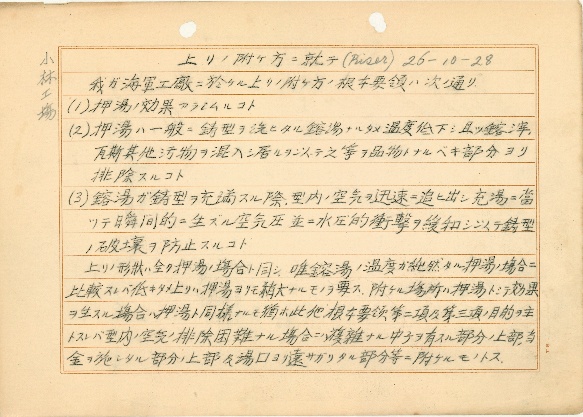 小林工場
上リノ附ケ方ニ就テ(Riser) 26-10-28
我ガ海軍工廠ニ於ケル上リノ附ケ方ノ根本要領ハ次ノ通リ
(1) 押湯ノ効果アラシムルコト
(2) 押湯ハ一般ニ鋳型ヲ流レタル鎔湯ナルタメ温度低下シ且ツ鎔滓,
瓦斯其他汚物ヲ混入シ居ルヲ以テ之等ヲ品物トナルベキ部分ヨリ
排除スルコト
(3) 鎔湯ガ鋳型ヲ充満スル際,型内ノ空気ヲ迅速ニ追ヒ出シ充湯ニ当
ツテ瞬間的ニ生ズル空気圧並ニ水圧的衝撃ヲ緩和シ以テ鋳型
ノ破壊ヲ防止スルコト
上リノ形状ハ全ク押湯ノ場合ト同ジ唯鎔湯ノ温度ガ純然タル押湯ノ場合ニ
比較スレバ低キタメ上リハ押湯ヨリモ稍大ナルモノヲ要ス.附ケル場所ハ押湯トシテ効果
ヲ生スル場合ハ押湯ト同様ナルモ此他根本要領第二項及第三項ノ目的ヲ主
トスレバ型内ノ空気ノ排除困難ナル場合ニハ複雑ナル中子ヲ有スル部分ノ上部,当
金ヲ施シタル部分ノ上部及湯口ヨリ遠サガリタル部分等ニ附ケルモノトス.